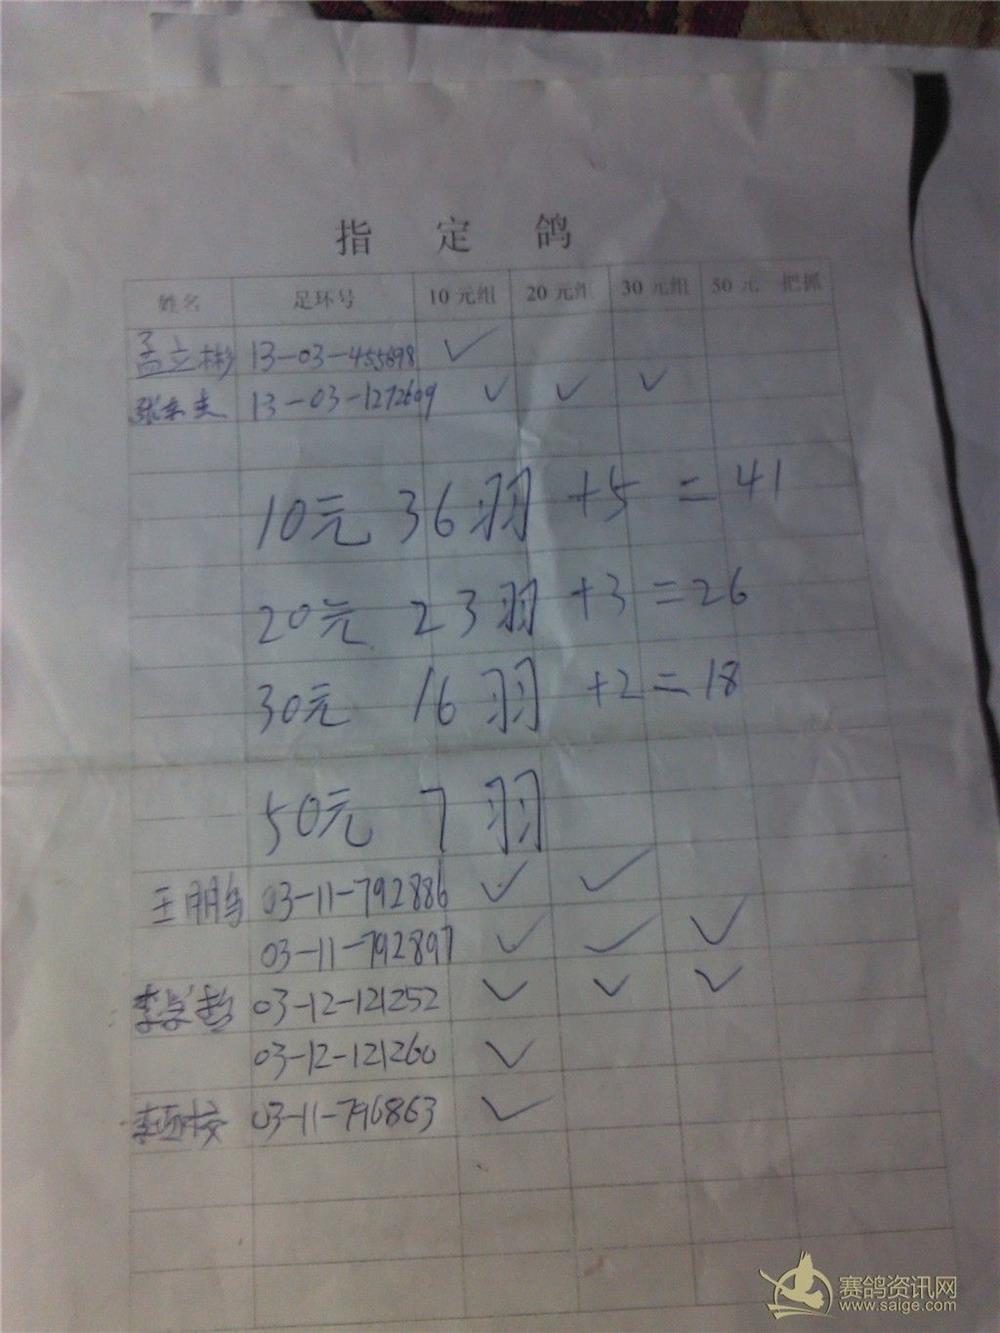 指 定 鸽
姓名 足环号 10 元组 20 元组 30 元组 50 元 把抓
孟立彬 13-03-455698 ✓
13-03-1272609 ✓ ✓ ✓
10元 36羽 +5 = 41
20元 23羽 +3 = 26
30元 16羽 +2 = 18
50元 7羽
王鹏 03-11-792886 ✓ ✓
03-11-792897 ✓ ✓ ✓
03-12-121252 ✓ ✓ ✓
03-12-121260 ✓
03-11-796863 ✓
赛鸽资讯网
www.saige.com